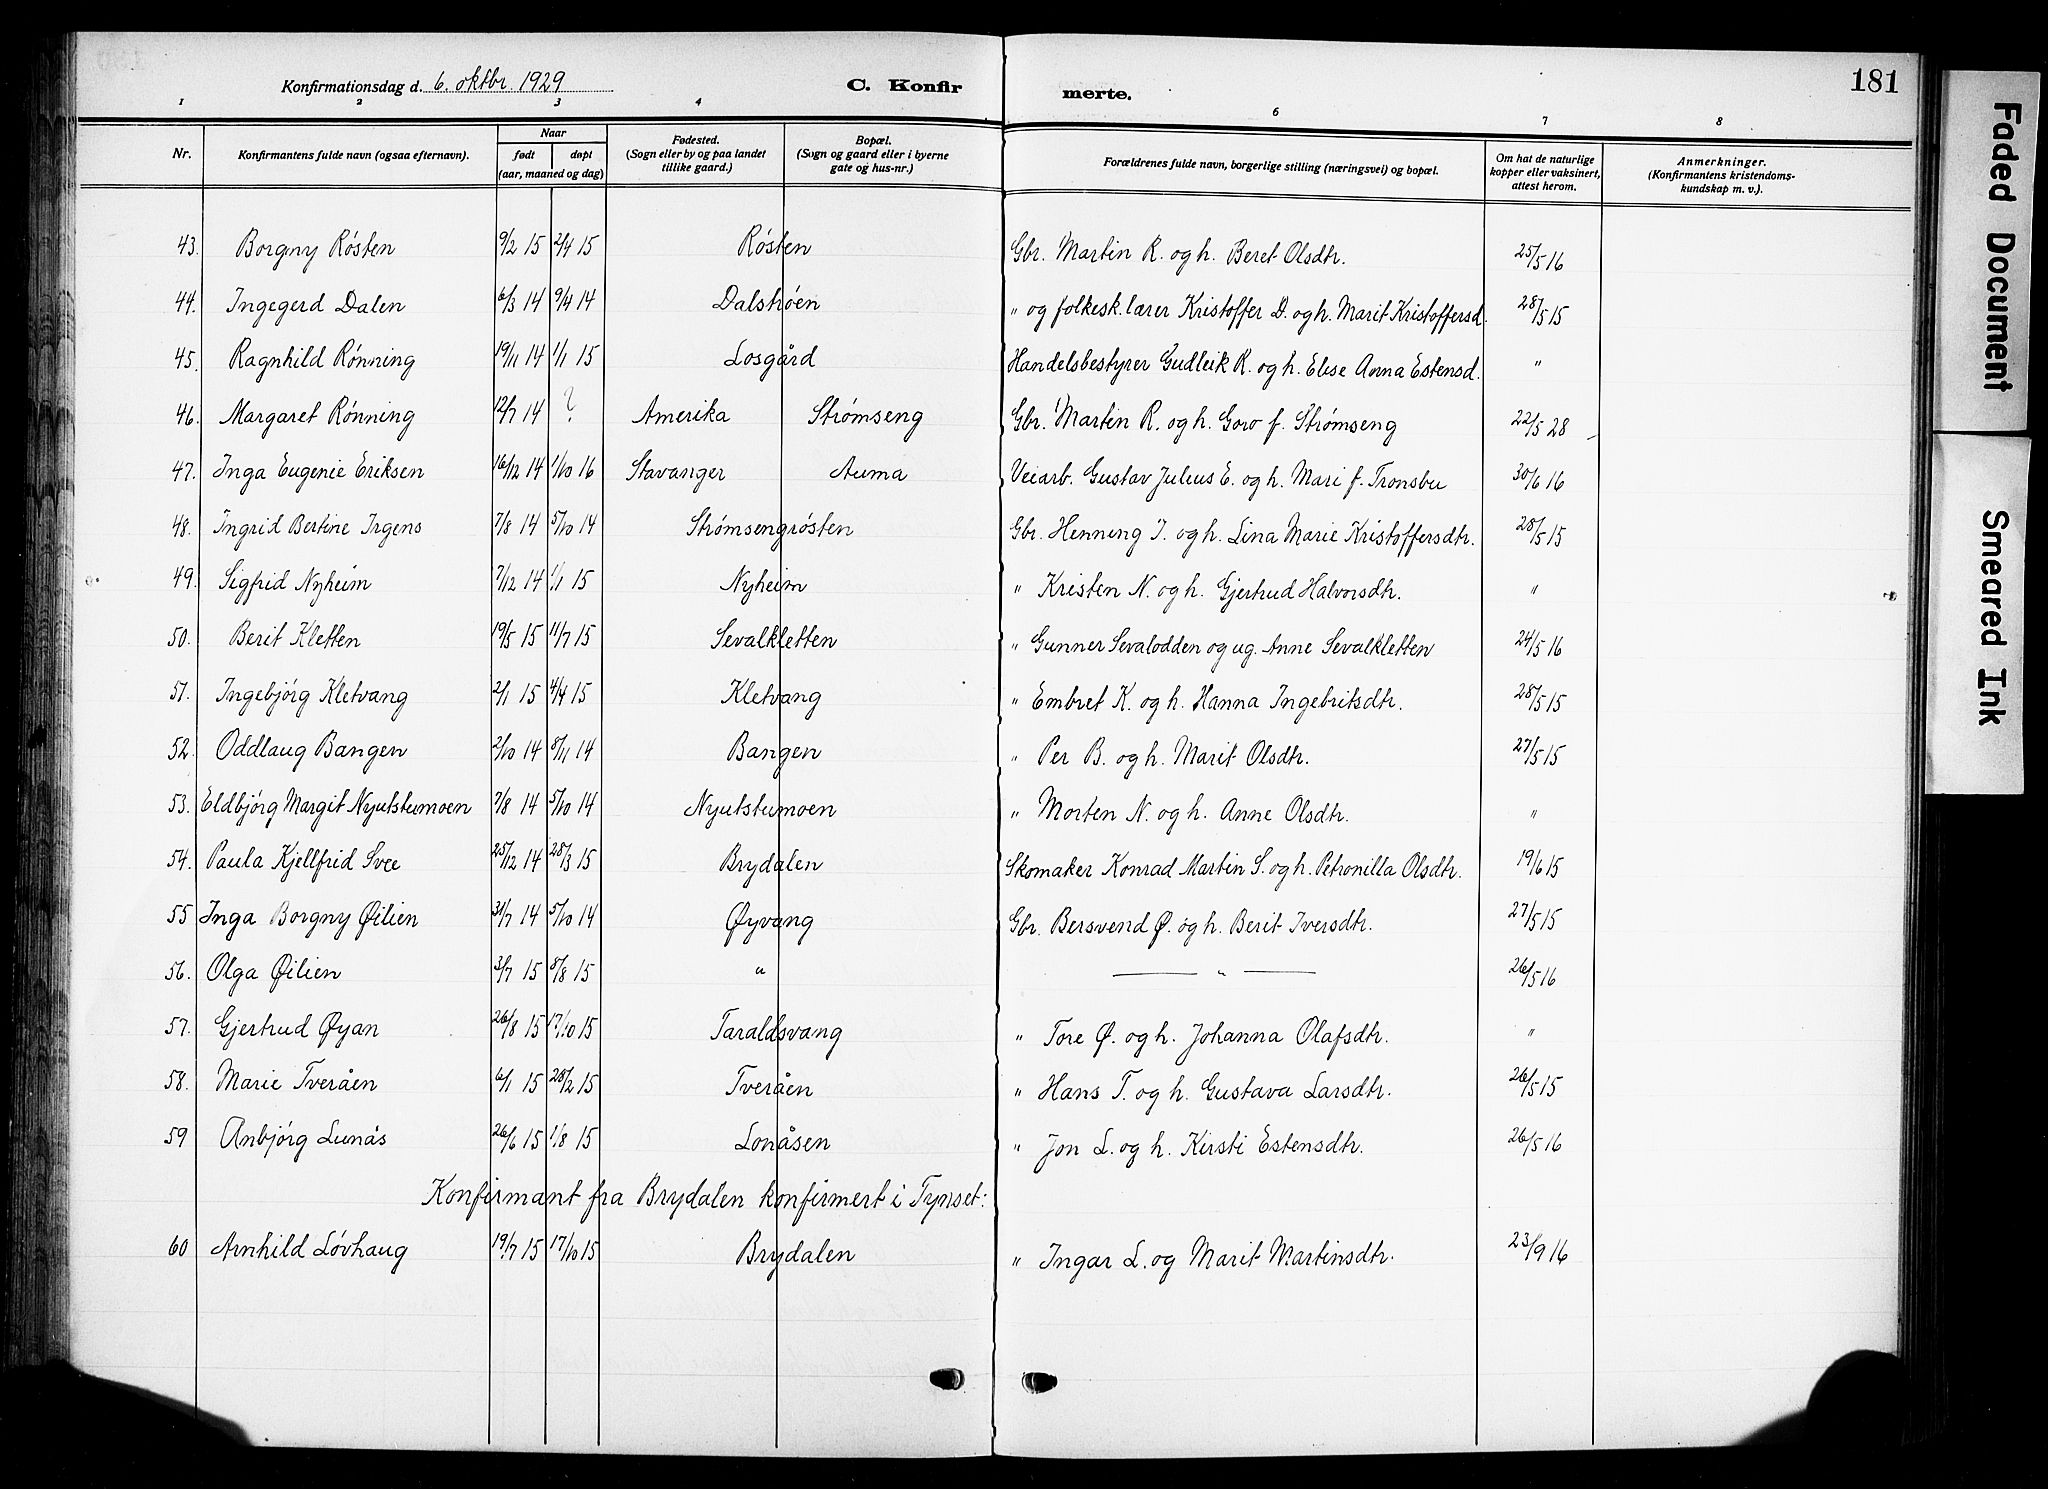 181
Konfirmationsdag d. 6. oktbr. 1929 C. Konfirmerte.
1 2 3 4 6 7 8
Nr. Konfirmantens fulde navn (ogsaa efternavn). Naar født døpt (aar, maaned og dag) Fødested. (Sogn eller by og paa landet tillike gaard.) Bopæl. (Sogn og gaard eller i byerne gate og hus-nr.) Forældrenes fulde navn, borgerlige stilling (næringsvei) og bopæl. Om hat de naturlige kopper eller vaksinert, attest herom. Anmerkninger. (Konfirmantens kristendomskundskap m. v.).
43. Borgny Røsten 9/2 15 2/4 15 Røsten Gbr. Martin R. og h. Beret Olsdtr. 25/5 16
44. Ingegerd Dalen 6/3 14 9/4 14 Dalstrøen " og folkesk.lærer Kristoffer D. og h. Marit Kristoffersd. 28/5 15
45. Ragnhild Rønning 19/11 14 1/1 15 Losgård Handelsbestyrer Gudleik R. og h. Elise Anna Estensd. "
46. Margaret Rønning 12/7 14 ? Amerika Strømseng Gbr. Martin R. og h. Goro f. Strømseng 22/5 28
47. Inga Eugenie Eriksen 16/12 14 1/10 16 Stavanger Auma Veiarb. Gustav Julius E. og h. Mari f. Tronsbu 30/6 16
48. Ingrid Bertine Irgens 7/8 14 5/10 14 Strømsengrøsten Gbr. Henning I. og h. Lina Marie Kristoffersdtr. 28/5 15
49. Sigfrid Nyheim 7/12 14 1/1 15 Nyheim " Kristen N. og h. Gjertrud Halvorsdtr. "
50. Berit Kletten 19/5 15 11/7 15 Sevalkletten " Gunner Sevalodden og ug. Anne Sevalkletten 24/5 16
51. Ingebjørg Kletvang 2/1 15 4/4 15 Kletvang " Embret K. og h. Hanna Ingebritsdtr. 28/5 15
52. Oddlaug Bangen 2/10 14 8/11 14 Bangen " Per B. og h. Marit Olsdtr. 27/5 15
53. Eldbjørg Margit Nyutstumoen 7/8 14 5/10 14 Nyutstumoen " Morten N. og h. Anne Olsdtr. "
54. Paula Kjellfrid Svee 25/12 14 28/3 15 Brydalen Skomaker Konrad Martin S. og h. Petronilla Olsdtr. 19/6 15
55 Inga Borgny Øilien 31/7 14 5/10 14 Øyvang Gbr. Bersvend Ø. og h. Berit Iversdtr. 27/5 15
56. Olga Øilien 3/7 15 8/8 15 " — " — 26/5 16
57. Gjertrud Øyan 26/8 15 17/10 15 Taraldsvang " Tore Ø. og h. Johanna Olafsdtr. "
58. Marie Tveråen 6/1 15 28/2 15 Tveråen " Hans T. og h. Gustava Larsdtr. 26/5 15
59 Anbjørg Lunås 26/6 15 1/8 15 Lonåsen " Jon L. og h. Kirsti Estensdtr. 26/5 16
Konfirmant fra Brydalen konfirmert i Tynset:
60 Arnhild Løvhaug 19/7 15 17/10 15 Brydalen " Ingar L. og Marit Martinsdtr. 23/9 16
Faded Document
Smeared Ink